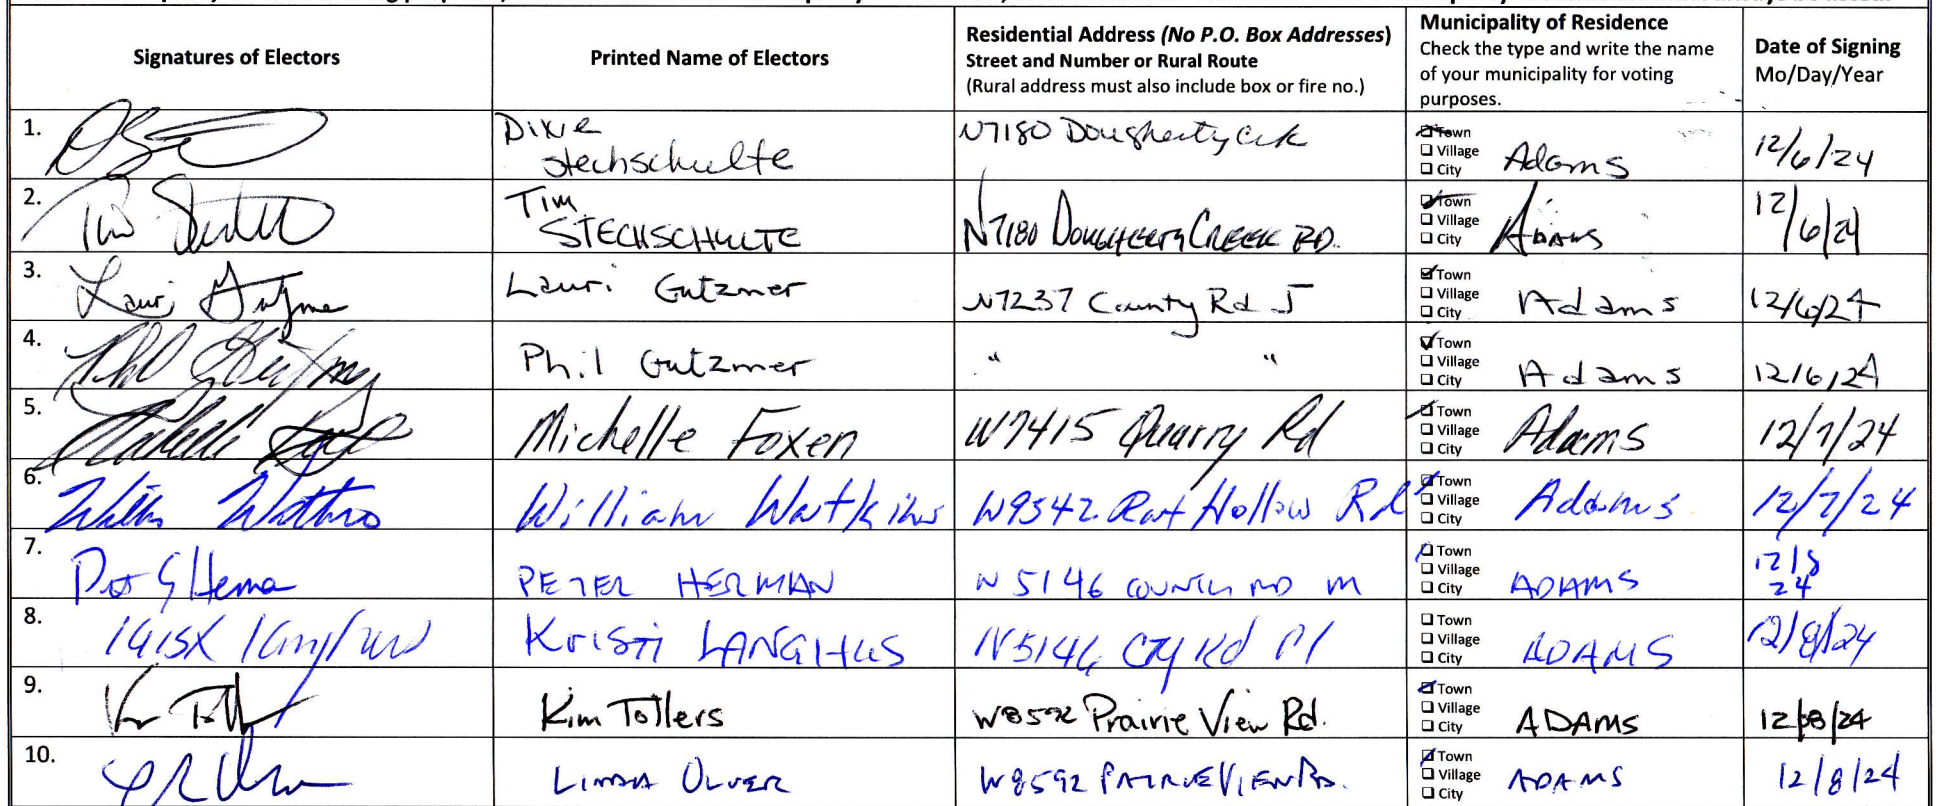 Signatures of Electors
Printed Name of Electors
Residential Address (No P.O. Box Addresses)
Street and Number or Rural Route
(Rural address must also include box or fire no.)
Municipality of Residence
Check the type and write the name
of your municipality for voting
purposes.
Date of Signing
Mo/Day/Year
1.
Dixie
Stechschulte
N7180 Dougherty Crk
Town
Village
City
Adams
12/6/24
2.
Tim
STECHSCHULTE
N7180 DOUGHERTY CREEK RD.
Town
Village
City
ADAMS
12/6/24
3.
Lauri Gutzmer
Lauri Gutzmer
N7237 County Rd J
Town
Village
City
Adams
12/6/24
4.
Phil Gutzmer
Phil Gutzmer
" "
Town
Village
City
Adams
12/6/24
5.
Michelle Foxen
W7415 Quarry Rd
Town
Village
City
Adams
12/7/24
6.
William Watkins
W9542 Rat Hollow Rd
Town
Village
City
Adams
12/7/24
7.
PETER HERMAN
N5146 COUNTY RD M
Town
Village
City
ADAMS
12/8
24
8.
Kristi LANGHUS
N5146 CTY Rd M
Town
Village
City
ADAMS
12/8/24
9.
Kim Tollers
W8592 Prairie View Rd.
Town
Village
City
ADAMS
12/8/24
10.
LINDA OLVER
W8592 PRAIRIE VIEW RD.
Town
Village
City
ADAMS
12/8/24